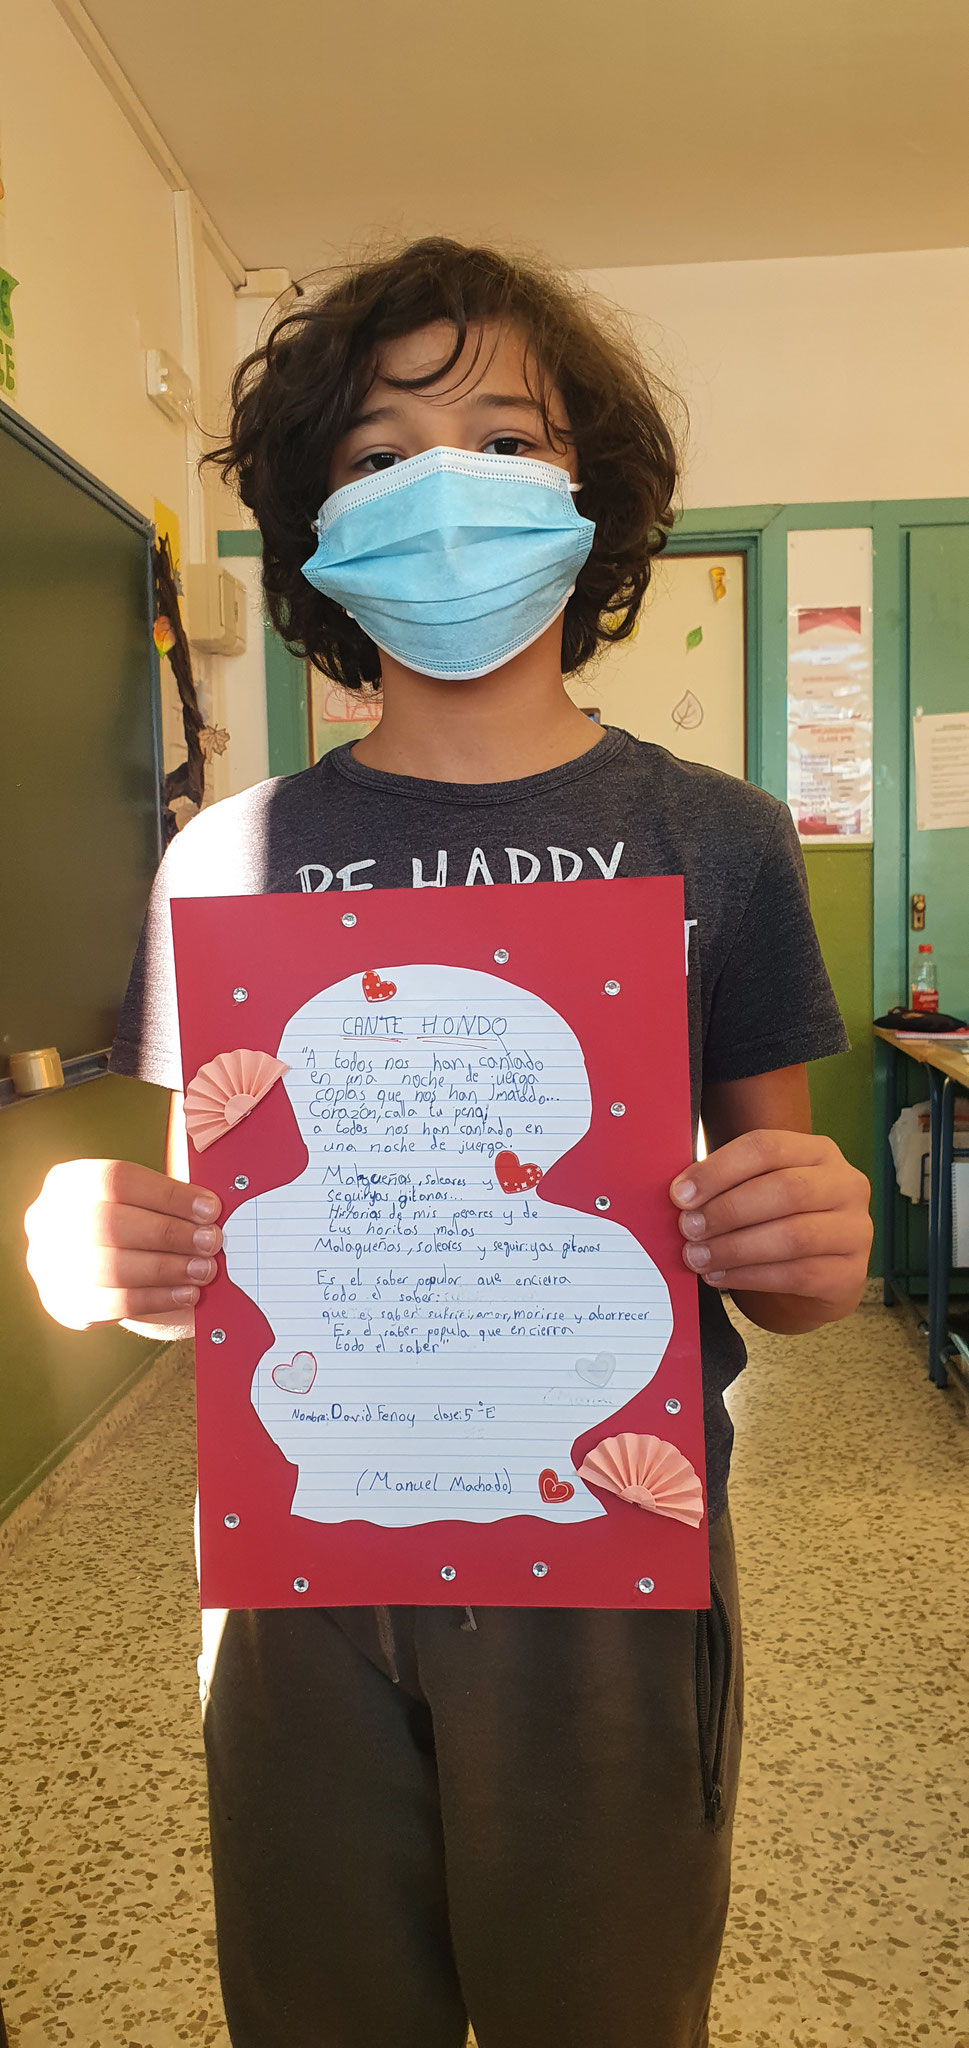 BE HAPPY
CANTE HONDO
"A todos nos han cantado
en una noche de juerga
coplas que nos han matado...
Corazón, calla tu pena;
a todos nos han cantado en
una noche de juerga.
Malagueñas, soleares y
seguiryas gitanas...
Historias de mis pesares y de
tus horitas malas
Malagueñas, soleares y seguiriyas gitanas
Es el saber popular que encierra
todo el saber:
que es saber sufrir, amar, morirse y aborrecer
Es el sáber popula que encierra
todo el saber"
Nombre: David Fenoy clase: 5ºE
(Manuel Machado)